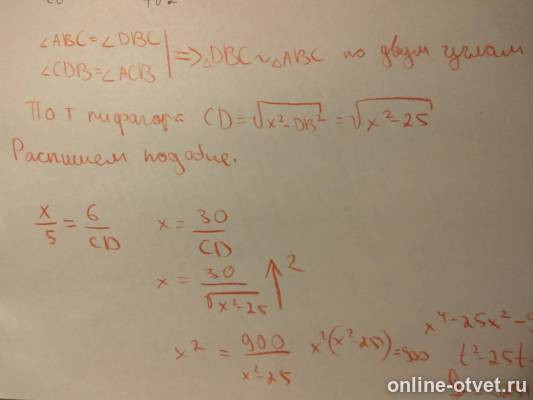 ∠ABC=∠DBC
∠CDB=∠ACB
=> △DBC ~ △ABC по двум углам
По т пифагора CD = √(x²-DB²) = √(x²-25)
Распишем подобие.
x/5 = 6/CD x = 30/CD
x = 30/√(x²-25) ↑2
x² = 900/(x²-25) x²(x²-25)=900
x⁴-25x²-9
t²-25t-
online-otvet.ru